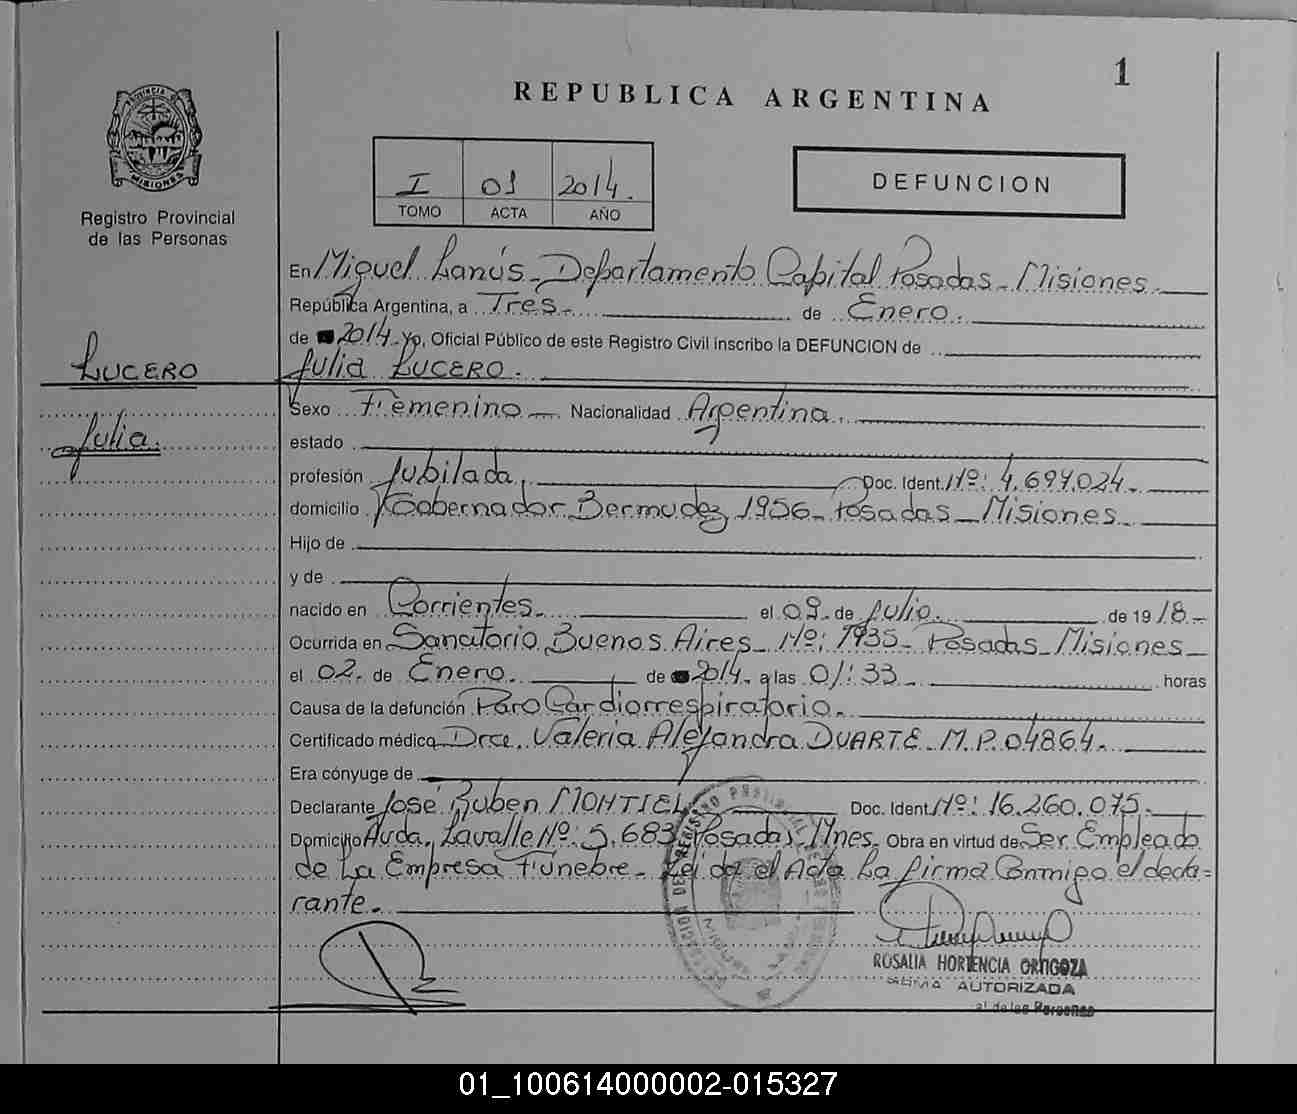 1
REPUBLICA ARGENTINA
PROVINCIA DE
MISIONES
Registro Provincial
de las Personas
I 01 2014.
TOMO ACTA AÑO
DEFUNCION
En Miguel Lanús - Departamento Capital Posadas - Misiones
República Argentina, a Tres. de Enero.
de 2014. Yo, Oficial Público de este Registro Civil inscribo la DEFUNCION de
LUCERO
Julia LUCERO.
Sexo Femenino - Nacionalidad Argentina.
Julia.
estado
profesión Jubilada. Doc. Ident. Nº: 4.694.024.
domicilio Gobernador Bermudez 1956 - Posadas - Misiones
Hijo de
y de
nacido en Corrientes. el 09. de Julio. de 19 18.
Ocurrida en Sanatorio Buenos Aires - Nº: 1935 - Posadas - Misiones
el 02. de Enero. de 2014. a las 01:33 horas
Causa de la defunción Paro Cardiorrespiratorio.
Certificado médico Dra. Valeria Alejandra DUARTE. M.P. 04864.
Era cónyuge de
Declarante José Ruben MONTIEL Doc. Ident. Nº: 16.260.075.
Domicilio Avda. Lavalle Nº: 5.683 Posadas Mnes. Obra en virtud de Ser Empleado
de La Empresa Fúnebre - Leída el Acta La firma Conmigo el decla=
rante.
ROSALIA HORTENCIA ORTIGOZA
FIRMA AUTORIZADA
al de las Personas
01_100614000002-015327